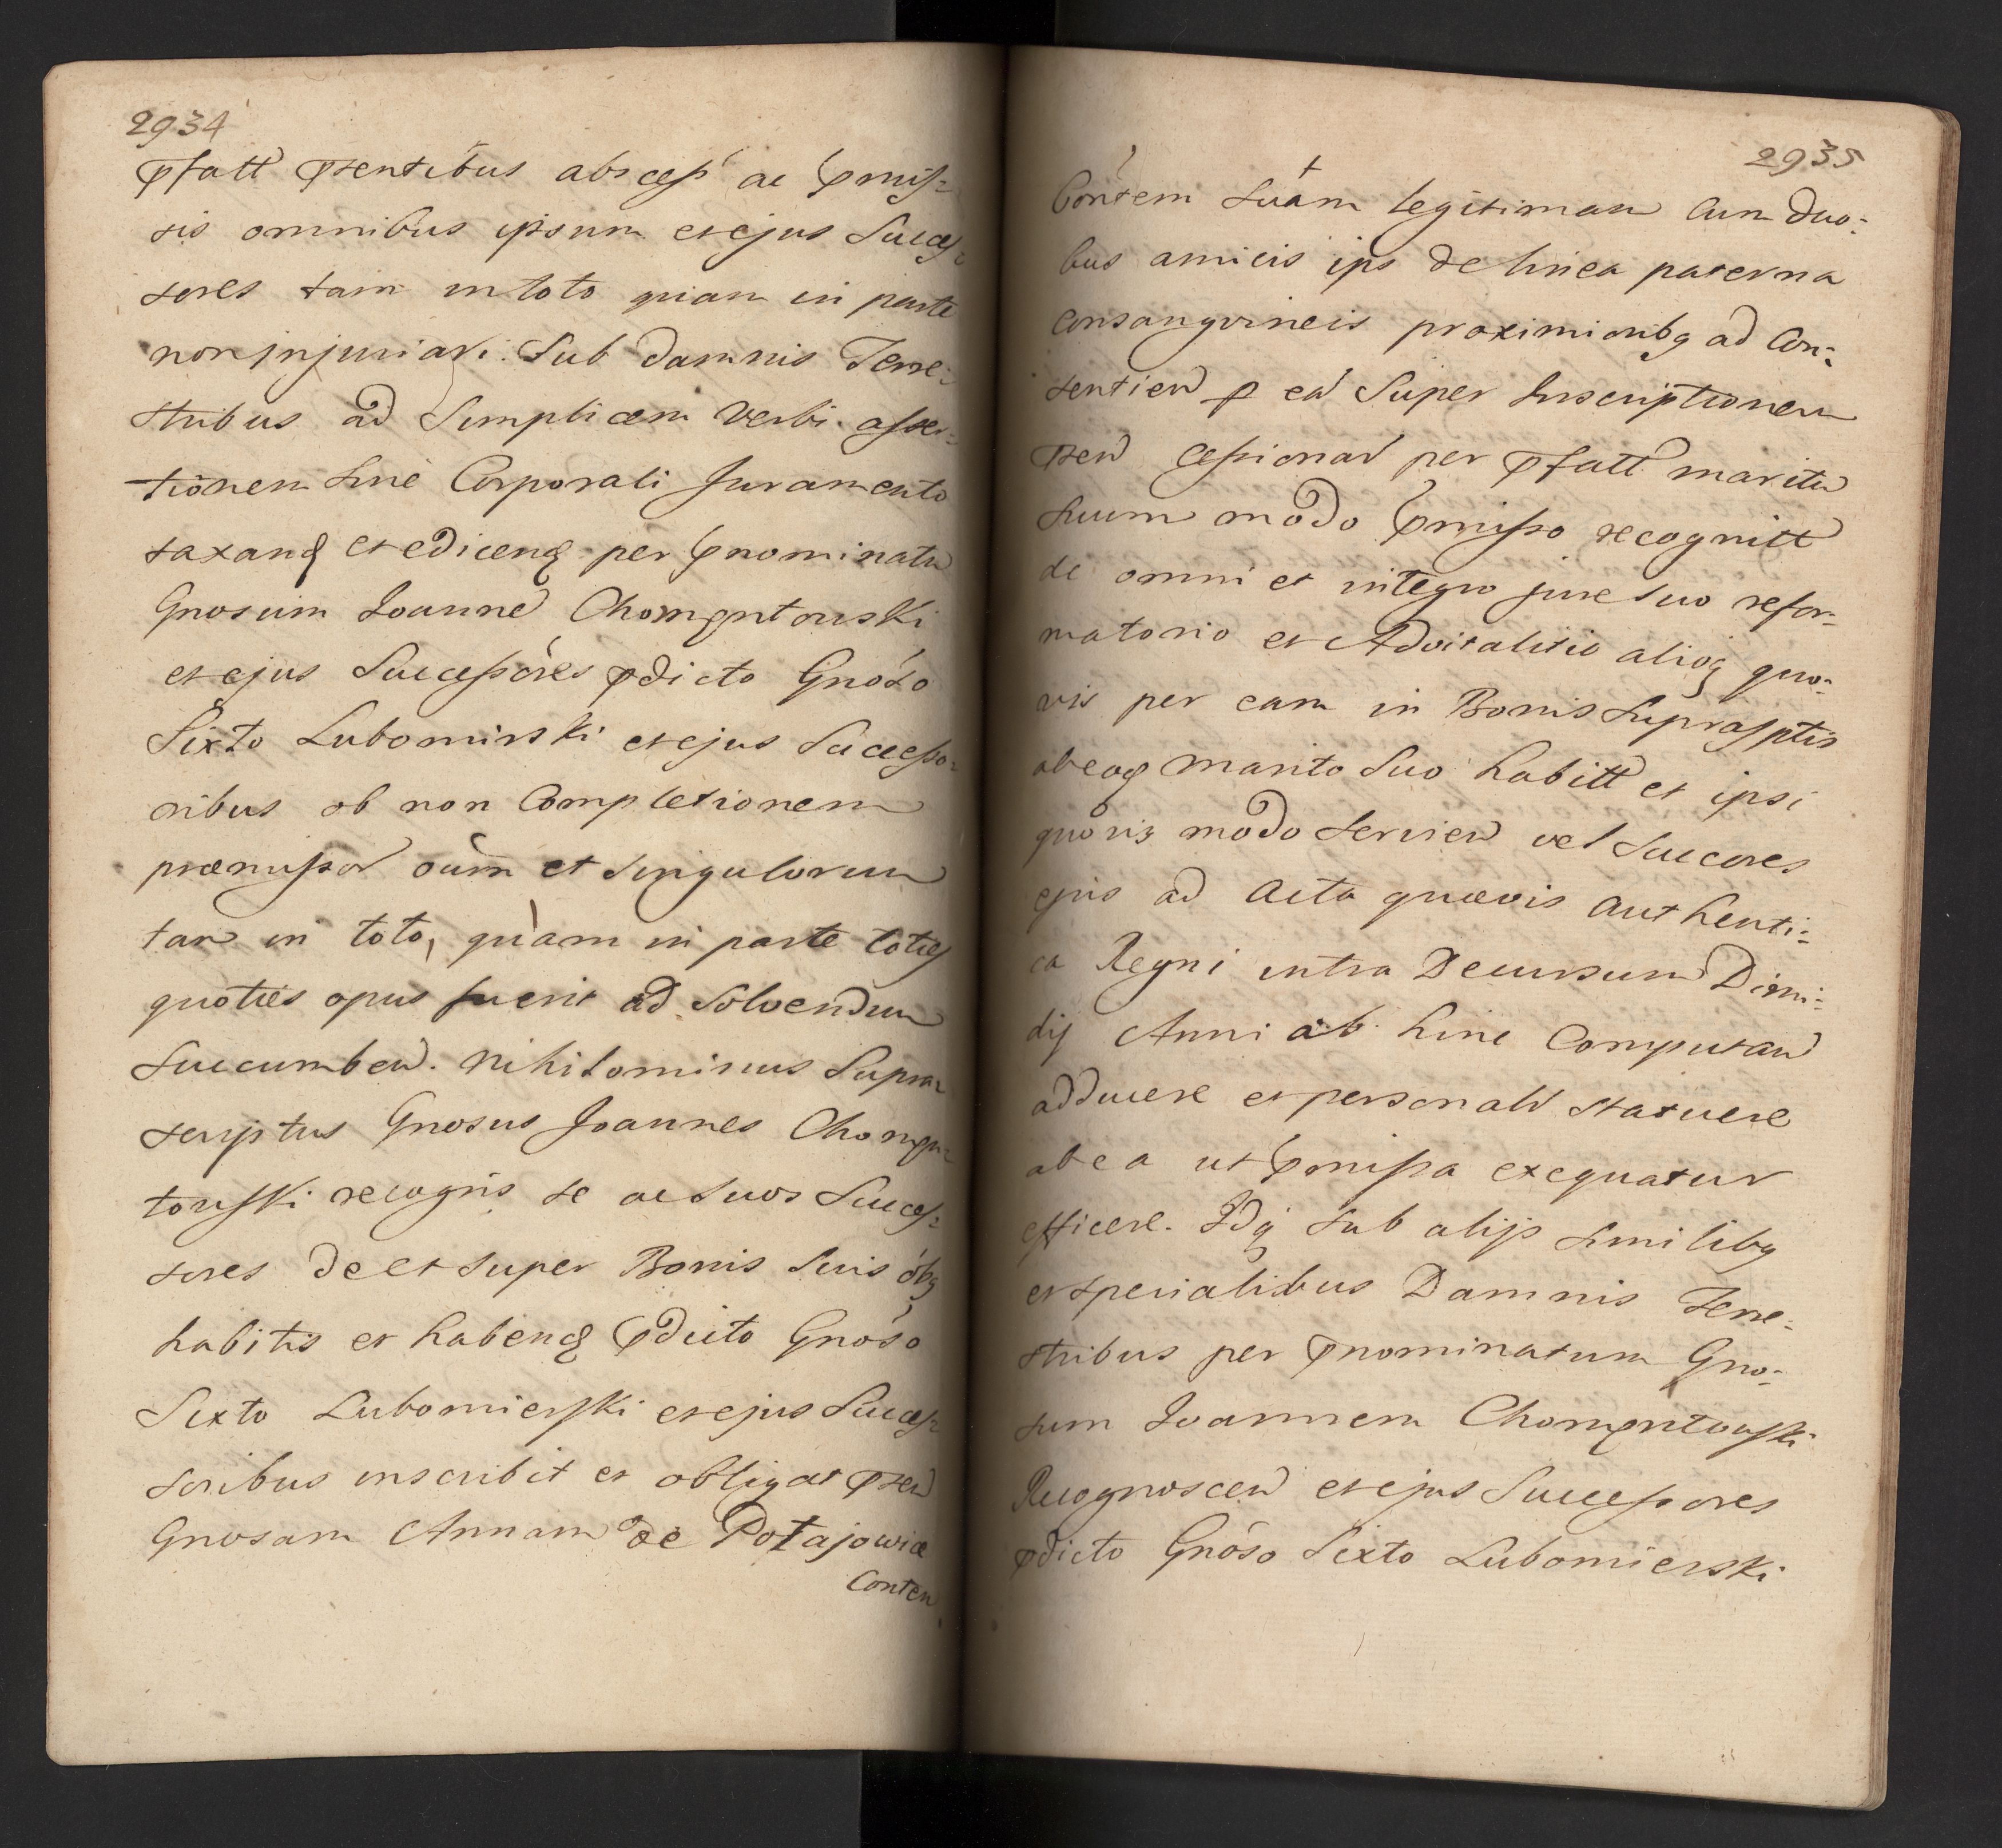 2934
pfatt psentibus abscess ac pmis:
sis omnibus ipsum et ejus Succes:
sores tam in toto quam in parte
non injuriari. Sub damnis Terre:
stribus ad Simplicem Verbi asser:
tionem sine Corporali Juramento
taxand et edicend per pnominatu
Gnosum Joanne Chomentowski
et ejus Successores pdicto Gnoso
Sixto Lubomirski et ejus Successo:
ribus ob non Completionem
præmissor oum et Singulorum
tam in toto, quàm in parte toties
quoties opus fuerit ad Solvendum
Succumben. Nihilominus Supra:
scriptus Gnosus Joannes Chomen:
towski recognis se ac suos Succes:
sores de et super Bonis Suis obq
habitis et habend pdicto Gnoso
Sixto Lubomierski et ejus Succes:
soribus inscribit et obligat psen
Gnosam Annam de Potajowice
Conten
2935
Contem Suam legitimam Cum duo:
bus amicis ips de linea paterna
consangvineis proximioribq ad Con:
sentien p ea Super Inscriptionem
psen cessional per pfatt maritu
suum modo pmisso recognitt
de omni et integro jure suo refor:
matorio et Advitalitio alioq quo:
vis per eam in Bonis Suprasptis
ab eoq marito Suo habitt et ipsi
quovis modo servien vel Succores
ejus ad Acta quævis authenti:
ca Regni intra Decursum Dimi:
dij Anni ab hinc Computan
adducere et personalr statuere
ab ea ut pmissa exequatur
efficere. Idq sub alijs similibq
et specialibus Damnis Terre:
stribus per pnominatum Gno:
sum Joannem Chomentowski
Recognoscen et ejus Successores
pdicto Gnoso Sixto Lubomierski